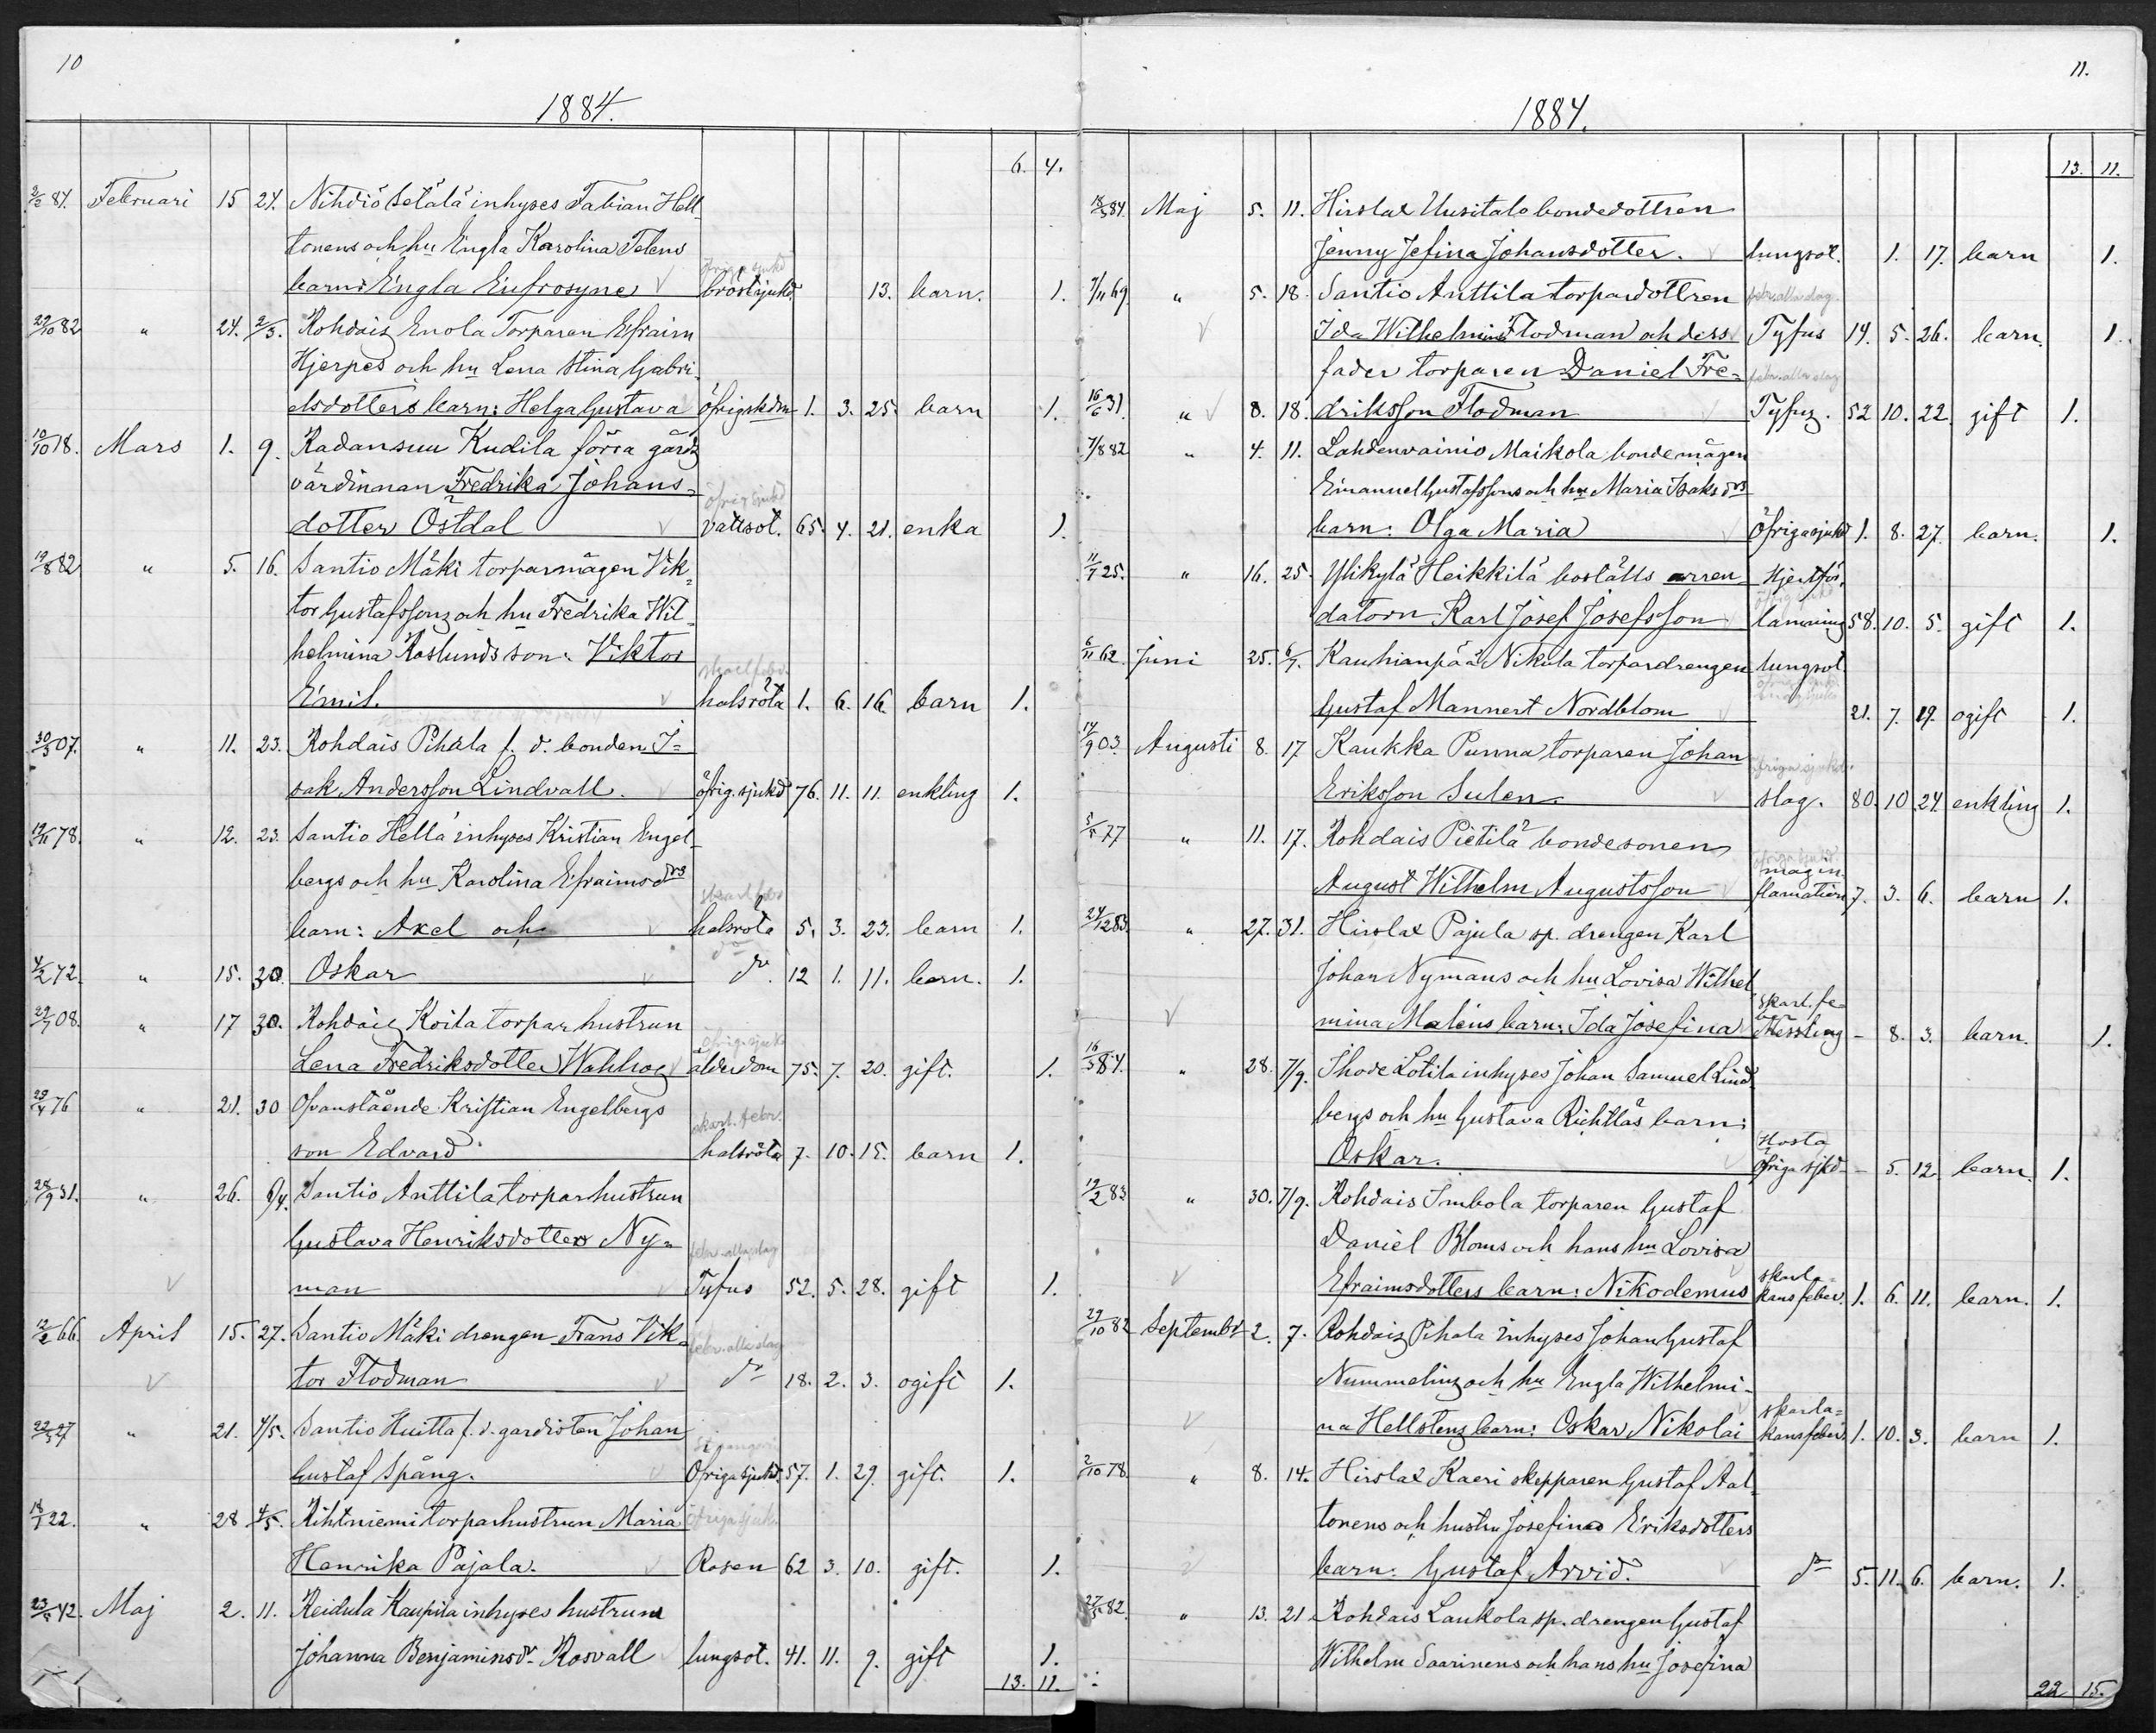 10
1884.
6. 4.
2/2 84. Februari 15 24. Nihdiö Setälä inhyses Fabian Hell
tonens och hu Engla Karolina Telens
öfriga sjukd
barn Engla Eufrosyne bröstsjukd. 13. barn. 1.
29/10 82 " 24. 2/3. Rohdais Enola Torparen Efraim
Hjerpes och hu Lena Stina Gabri-
elsdotters barn: Helga Gustava öfrig skdm 1. 3. 25. barn 1.
10/10 18. Mars 1. 9. Radansuu Kudila förra gårds
värdinnan Fredrika Johans-
öfrig sjukd
dotter Ostdal vattsot. 65. 4. 21. enka 1.
19/8 82 " 5. 16. Santio Mäki torparmågen Vik-
tor Gustafssons och hu Fredrika Wil-
helmina Roslunds son: Viktor
Emil. halsröta 1. 6. 16. barn 1.
30/3 07. " 11. 23. Rohdais Pihala f. d. bonden I=
sak Andersson Lindvall. öfrig. sjukd 76. 11. 11. enkling 1.
19/11 78. " 12. 23. Santio Hellä inhyses Kristian Engel-
bergs och hu Karolina Efraimsdrs
barn: Axel och halsröta 5. 3. 23. barn 1.
do
4/2 72. " 15. 30. Oskar do. 12 1. 11. barn. 1.
22/7 08. " 17 30. Rohdais Koila torparhustrun
öfrig. sjuk
Lena Fredriksdotter Wahlroos ålderdom 75. 7. 20. gift. 1.
" 21. 30 Ofvanstående Kristian Engelbergs
skarl. febr.
son Edvard halsröta 7. 10. 15. barn 1.
28/9 31. " 26. 6/4. Santio Anttila torparhustrun
Gustava Henriksdotter Ny-
febr. alla slag
man Tyfus 52. 5. 28. gift 1.
12/2 66 April 15. 27. Santio Mäki drengen Frans Vik-
febr. alla slag
tor Flodman do 18. 2. 3. ogift 1.
22/3 27 " 21. 4/5. Santio Huitta f. d. gardisten Johan
Gustaf Spång. Öfriga sjukd. 57. 1. 29. gift. 1.
18/1 22. " 28 4/5. Rihtniemi torparhustrun Maria öfriga sjukd
Henrika Pajala. Rosen 62 3. 10. gift. 1.
23/5 42. Maj 2. 11. Reidula Kaupila inhyses hustrun
Johanna Benjaminsdr Rosvall lungsot. 41. 11. 9. gift 1.
13. 11.
11.
1884.
13. 11.
18/3 84. Maj 5. 11. Hirslax Uusitalo bondedottren
Jenny Jefina Johansdotter. lungsot. 1. 17. barn 1.
7/11 69. " 5. 18. Santio Anttila torpardottren febr. alla slag.
Ida Wilhelmina Flodman och dess Tyfus 14. 5. 26. barn. 1.
fader torparen Daniel Fre= febr. alla slag
16/6 31. " 8. 18. driksson Flodman Tyfus. 52 10. 22. gift 1.
7/8 82 " 4. 11. Lahdenvainio Maikola bondemågen
Emanuel Gustafssons och hu Maria Isaksdrs
barn: Olga Maria Öfriga sjukd 1. 8. 27. barn. 1.
11/7 25. " 16. 25. Ylikylä Heikkilä boställs arren- Hjertför-
öfrig sjukd
datorn Karl Josef Josefsson lamning 58. 10. 5. gift 1.
6/11 62. Juni 25. 6/7. Kauhianpää Nikula torpardrengen lungsot
Gustaf Mannert Nordblom 21. 7. 19. ogift 1.
14/9 03. Augusti 8. 17 Kaukka Punna torparen Johan
öfriga sjukd.
Eriksson Sulen. slag. 80. 10. 24. enkling 1.
5/5 77 " 11. 17. Rohdais Pietilä bondesonen
öfriga sjukd.
magin-
August Wilhelm Augustsson flamation 7. 3. 6. barn 1.
24/12 83. " 27. 31. Hirslax Pajula sp. drengen Karl
Johan Nymans och hu Lovisa Wilhel
skarl. fe-
ber
mina Malens barn: Ida Josefina Messling - 8. 3. barn. 1.
16/3 84. " 28. 7/9. Ihode Lotila inhyses Johan Samuel Lind
bergs och hu Gustava Richtlås barn:
Hosta
Oskar. öfriga sjkd - 5. 12. barn. 1.
19/2 83 " 30. 7/9. Rohdais Imbola torparen Gustaf
Daniel Bloms och hans hu Lovisa
skarla-
Efraimsdotters barn: Nikodemus kans feber. 1. 6. 11. barn. 1.
29/10 82 Septembr 2. 7. Rohdais Pihala inhyses Johan Gustaf
Nummelins och hu Engla Wilhelmi-
skarla=
na Hellstens barn: Oskar Nikolai kansfeber 1. 10. 3. barn 1.
2/10 78. " 8. 14. Hirslax Kaeri skepparen Gustaf Aal-
tonens och hustru Josefinas Eriksdotters
barn: Gustaf Arvid. do 5. 11. 6. barn. 1.
27/5 82. " 13. 21. Rohdais Laukola sp. drengen Gustaf
Wilhelm Saarinens och hans hu Josefina
22 15.